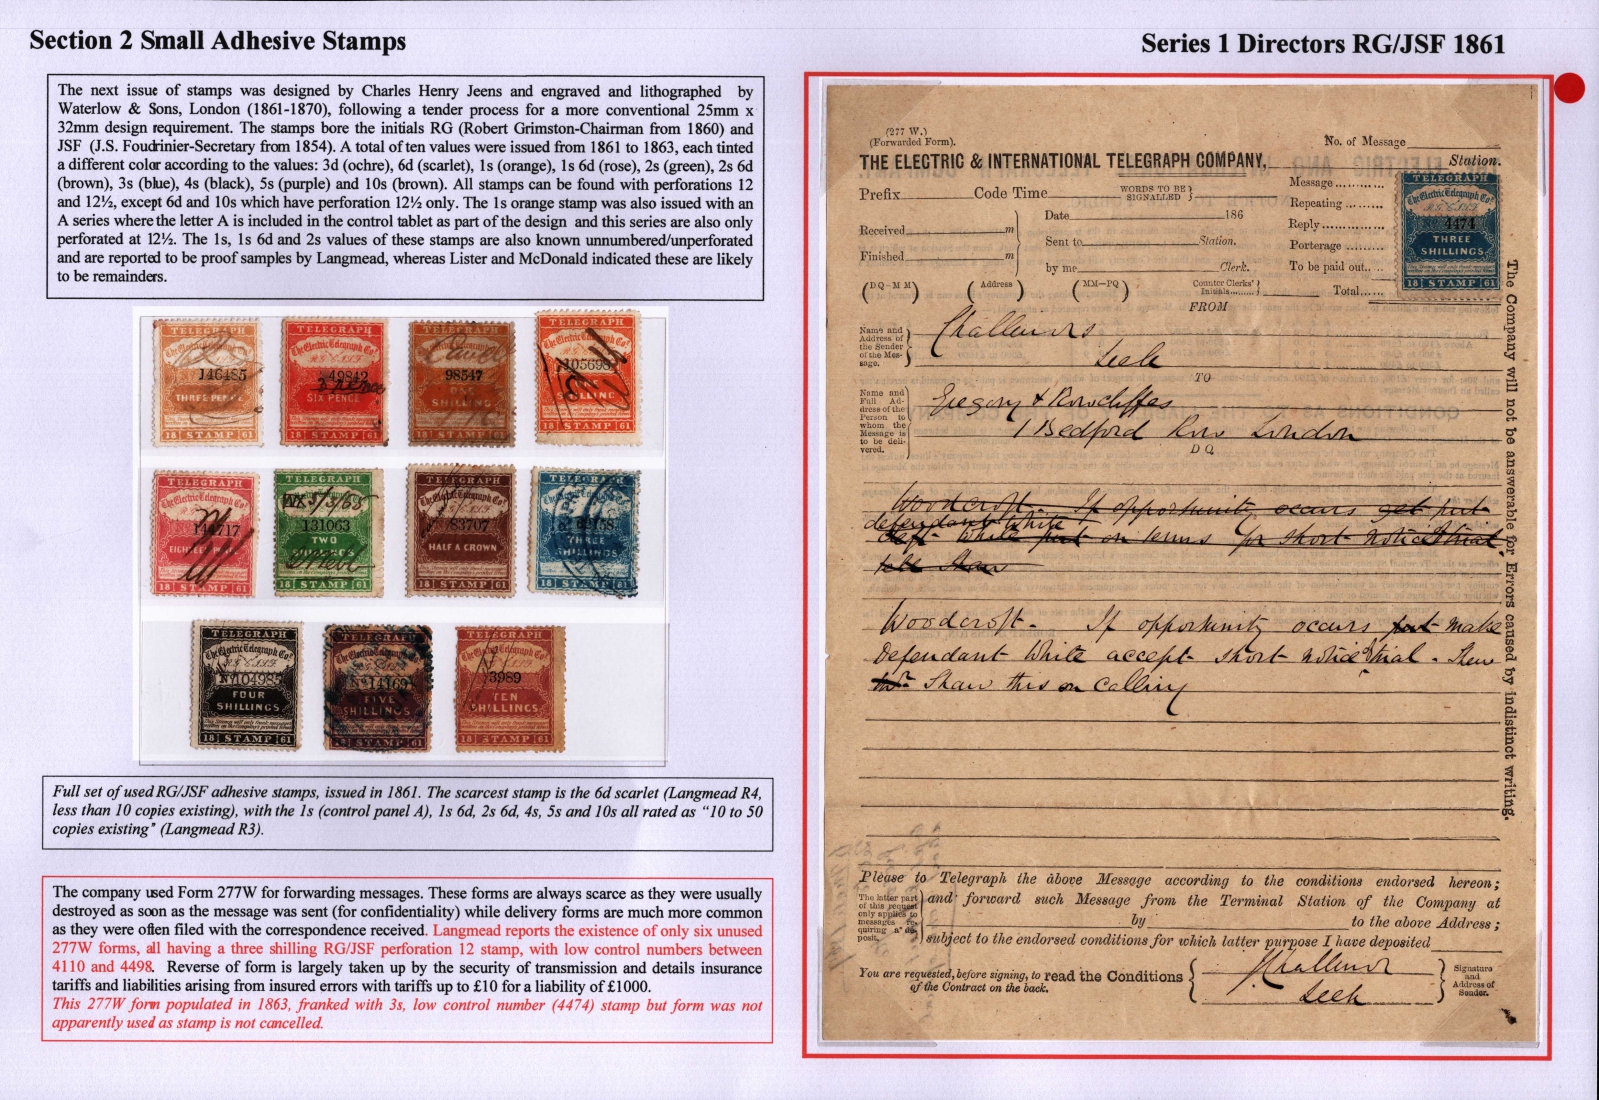 Section 2 Small Adhesive Stamps
Series 1 Directors RG/JSF 1861
The next issue of stamps was designed by Charles Henry Jeens and engraved and lithographed by
Waterlow & Sons, London (1861-1870), following a tender process for a more conventional 25mm x
32mm design requirement. The stamps bore the initials RG (Robert Grimston-Chairman from 1860) and
JSF (J.S. Foudrinier-Secretary from 1854). A total of ten values were issued from 1861 to 1863, each tinted
a different color according to the values: 3d (ochre), 6d (scarlet), 1s (orange), 1s 6d (rose), 2s (green), 2s 6d
(brown), 3s (blue), 4s (black), 5s (purple) and 10s (brown). All stamps can be found with perforations 12
and 12½, except 6d and 10s which have perforation 12½ only. The 1s orange stamp was also issued with an
A series where the letter A is included in the control tablet as part of the design and this series are also only
perforated at 12½. The 1s, 1s 6d and 2s values of these stamps are also known unnumbered/unperforated
and are reported to be proof samples by Langmead, whereas Lister and McDonald indicated these are likely
to be remainders.
TELEGRAPH
The Electric Telegraph Co.
146485
THREE PENCE
18 STAMP 61
TELEGRAPH
The Electric Telegraph Co.
49842
SIX PENCE
18 STAMP 61
TELEGRAPH
The Electric Telegraph Co.
98547
SHILLING
18 STAMP 61
TELEGRAPH
The Electric Telegraph Co.
105698
SHILLING
18 STAMP 61
TELEGRAPH
The Electric Telegraph Co.
18 STAMP 61
TELEGRAPH
The Electric Telegraph Co.
131063
TWO
SHILLINGS
18 STAMP 61
TELEGRAPH
The Electric Telegraph Co.
83707
HALF A CROWN
18 STAMP 61
TELEGRAPH
The Electric Telegraph Co.
THREE
SHILLINGS
18 STAMP 61
TELEGRAPH
The Electric Telegraph Co.
No 104985
FOUR
SHILLINGS
18 STAMP 61
TELEGRAPH
The Electric Telegraph Co.
No 14169
FIVE
SHILLINGS
18 STAMP 61
TELEGRAPH
The Electric Telegraph Co.
3989
TEN
SHILLINGS
18 STAMP 61
Full set of used RG/JSF adhesive stamps, issued in 1861. The scarcest stamp is the 6d scarlet (Langmead R4,
less than 10 copies existing), with the 1s (control panel A), 1s 6d, 2s 6d, 4s, 5s and 10s all rated as "10 to 50
copies existing" (Langmead R3).
The company used Form 277W for forwarding messages. These forms are always scarce as they were usually
destroyed as soon as the message was sent (for confidentiality) while delivery forms are much more common
as they were often filed with the correspondence received. Langmead reports the existence of only six unused
277W forms, all having a three shilling RG/JSF perforation 12 stamp, with low control numbers between
4110 and 4498. Reverse of form is largely taken up by the security of transmission and details insurance
tariffs and liabilities arising from insured errors with tariffs up to £10 for a liability of £1000.
This 277W form populated in 1863, franked with 3s, low control number (4474) stamp but form was not
apparently used as stamp is not cancelled.
(277 W.)
(Forwarded Form).
No. of Message
THE ELECTRIC & INTERNATIONAL TELEGRAPH COMPANY,
Station.
Prefix Code Time WORDS TO BE SIGNALLED
Date 186
Received m
Sent to Station.
Finished m
by me Clerk.
(DQ-MM) (Address) (MM-PQ) Counter Clerks' Initials
Message
Repeating
Reply
Porterage
To be paid out
Total
TELEGRAPH
The Electric Telegraph Co.
No 4474
THREE
SHILLINGS
18 STAMP 61
FROM
Name and Address of the Sender of the Message.
Challinors
Leek
TO
Name and Full Address of the Person to whom the Message is to be delivered.
Gregory & Rowcliffes
1 Bedford Row London
DQ
Woodcroft. If opportunity occurs get put
defendant White
deft White put on terms for short notice trial
tell Shaw
Woodcroft. If opportunity occurs put make
Defendant White accept short notice trial. Shew
Mr Shaw this on calling
The Company will not be answerable for Errors caused by indistinct writing.
Please to Telegraph the above Message according to the conditions endorsed hereon;
The latter part of this request only applies to messages requiring a deposit.
and forward such Message from the Terminal Station of the Company at
by to the above Address;
subject to the endorsed conditions for which latter purpose I have deposited
You are requested, before signing, to read the Conditions
of the Contract on the back.
J Challinor
Leek
Signature and Address of Sender.